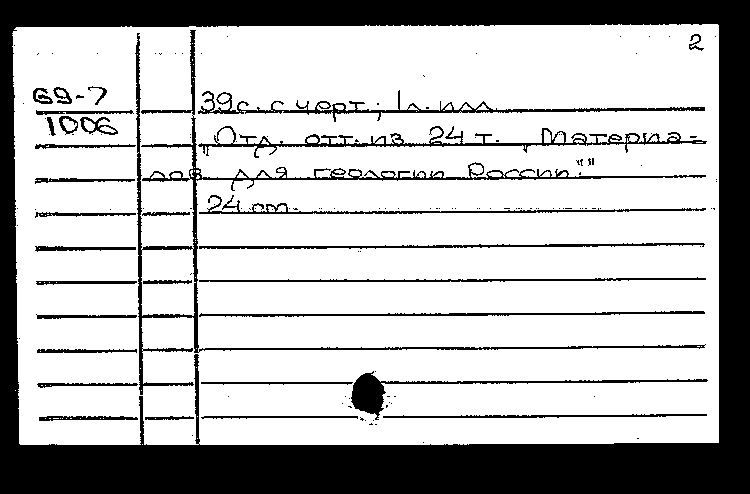 2
69-7
1006
39 с. с черт.; 1 л. илл.
„Отд. отт. из 24 т. „Материа-
лов для геологии России.““
24 см.